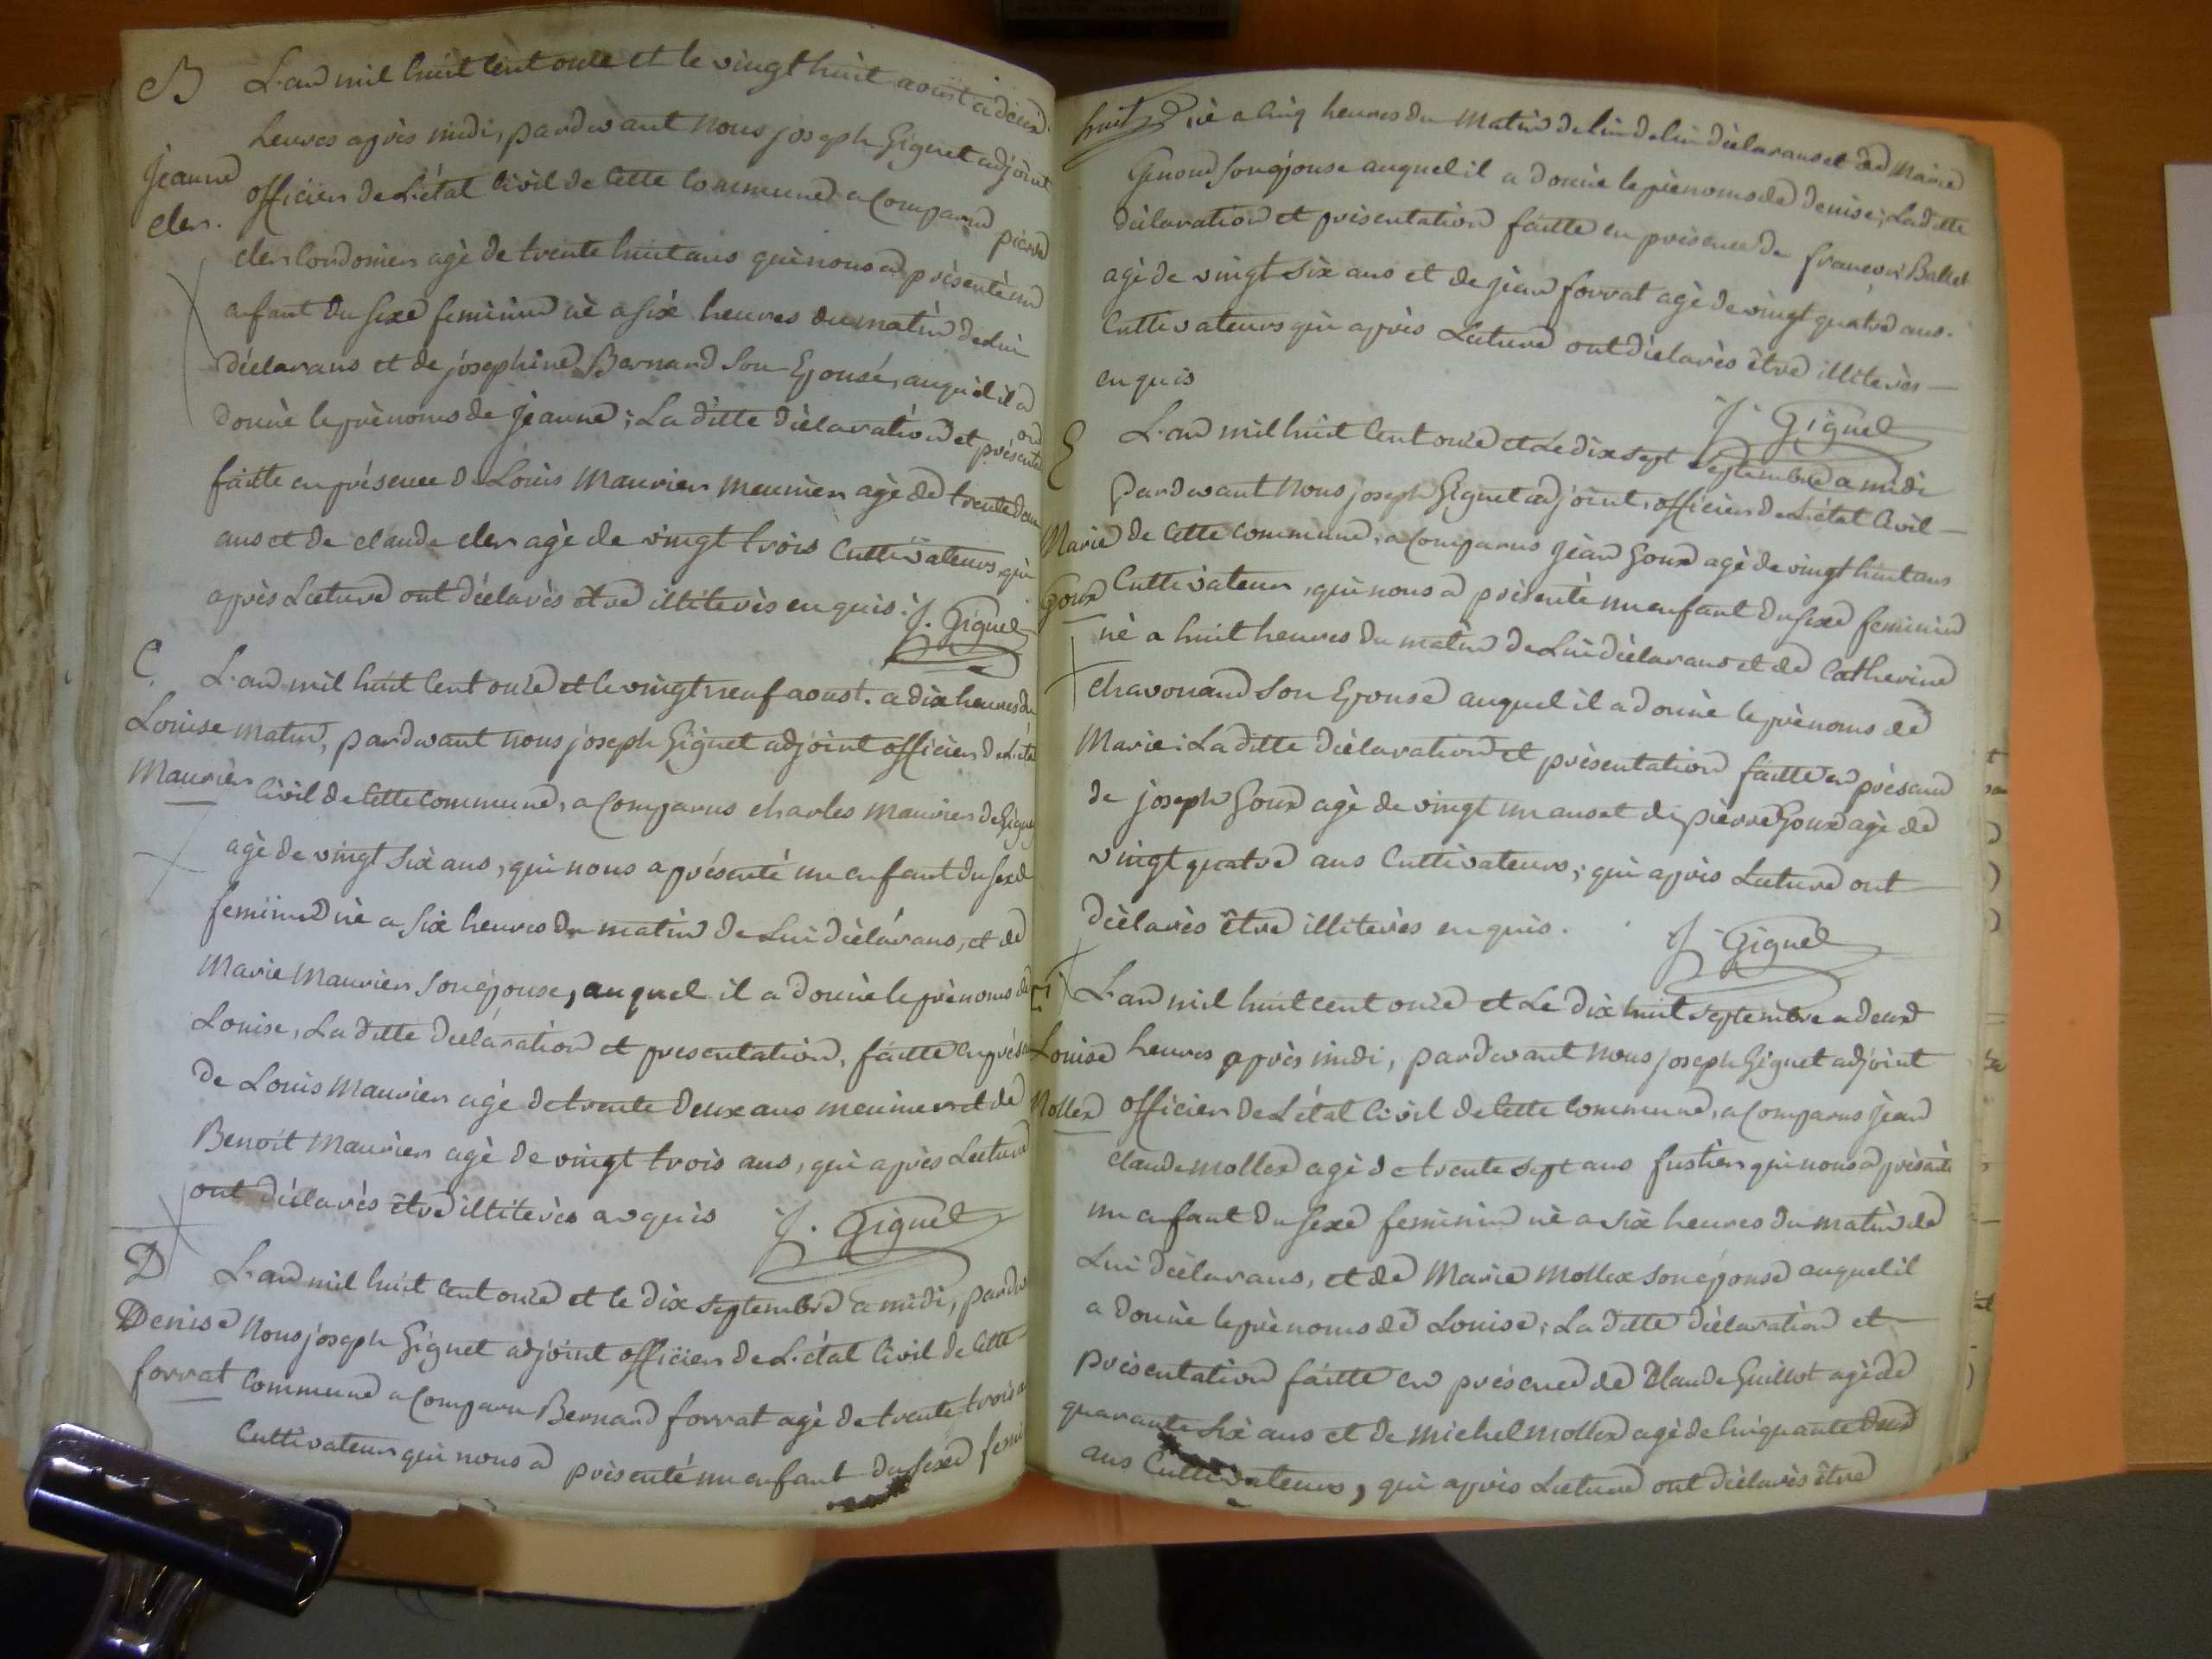 B L'an mil huit Cent onze et le vingt huit aoust a deux
heures après midi, pardevant nous joseph Giguet adjoint
Jeanne officier de L'état Civil de Cette Commune a Comparu pierre
cler. cler Cordonier agé de trente huit ans qui nous a présenté un
enfant du sexe feminin né a six heures du matin de lui
déclarans et de josephine Barnard son Epouse, auquel il a
donné le prènoms de Jeanne ; La ditte déclaration et présentation
faitte en présence de Louis Maurier meunier agé de trente deux
ans et de claude cler agé de vingt trois Cultivateurs, qui
après Lecture ont déclarés etre illiterès enquis. J. Giguet
C. L'an mil huit Cent onze et le vingt neuf aoust. a dix heures du
Louise matin, pardevant nous joseph Giguet adjoint officier de L'état
Maurier Civil de Cette Commune, a Comparus charles Maurier de
agé de vingt six ans, qui nous a présenté un enfant du sexe
feminin né a six heures du matin de Lui déclarans, et de
Marie Maurier son épouse, auquel il a donné le prènoms de
Louise, La ditte declaration et presentation, faitte en
de Louis Maurier agé de trente deux ans meunier et de
Benoit Maurier agé de vingt trois ans, qui après Lecture
ont déclarés etre illiterès enquis J. Giguet
D L'an mil huit Cent onze et le dix septembre a midi,
Denise Nous joseph Giguet adjoint officier de L'état Civil de Cette
forrat Commune a Comparu Bernard forrat agé de trente trois
Cultivateur qui nous a présenté un enfant du sexe
né a Cinq heures du matin de lui de lui déclarans et de Marie
son épouse auquel il a donné le prénoms de Denise; La ditte
déclaration et présentation faitte en présence de francois Ballet
agé de vingt six ans et de jean forrat agé de vingt quatre ans.
Cultivateurs qui après Lecture ont déclarés être illiterès
enquis J. Giguet
E L'an mil huit Cent onze et Le dix sept septembre a midi
Pardevant Nous joseph Giguet adjoint, officier de L'état Civil
Marie de Cette Commune, a Comparus jean Goux agé de vingt huit ans
Goux Cultivateur, qui nous a présenté un enfant du sexe feminin
né a huit heures du matin de Lui déclarans et de Catherine
chavonand son Epouse auquel il a donné le prénoms de
Marie : La ditte déclaration et présentation faitte en présance
de joseph Goux agé de vingt un ans et de pierre Goux agé de
vingt quatre ans Cultivateurs ; qui après Lecture ont
déclarés être illiterès enquis. J. Giguet
L'an mil huit cent onze et Le dix huit septembre a deux
Louise heures après midi, pardevant Nous joseph Giguet adjoint
Mollex officier de L'état Civil de Cette Commune, a Comparus jean
claude mollex agé de trente sept ans fustier qui nous a présenté
un enfant du sexe feminin né a six heures du matin de
Lui déclarans, et de Marie Mollex son épouse auquel il
a donné le prénoms de Louise ; La ditte déclaration et
présentation faitte en présence de Claude Guillot agé de
quarante six ans et de michel mollex agé de Cinquante deux
ans Cultivateurs, qui après Lecture ont déclarés être